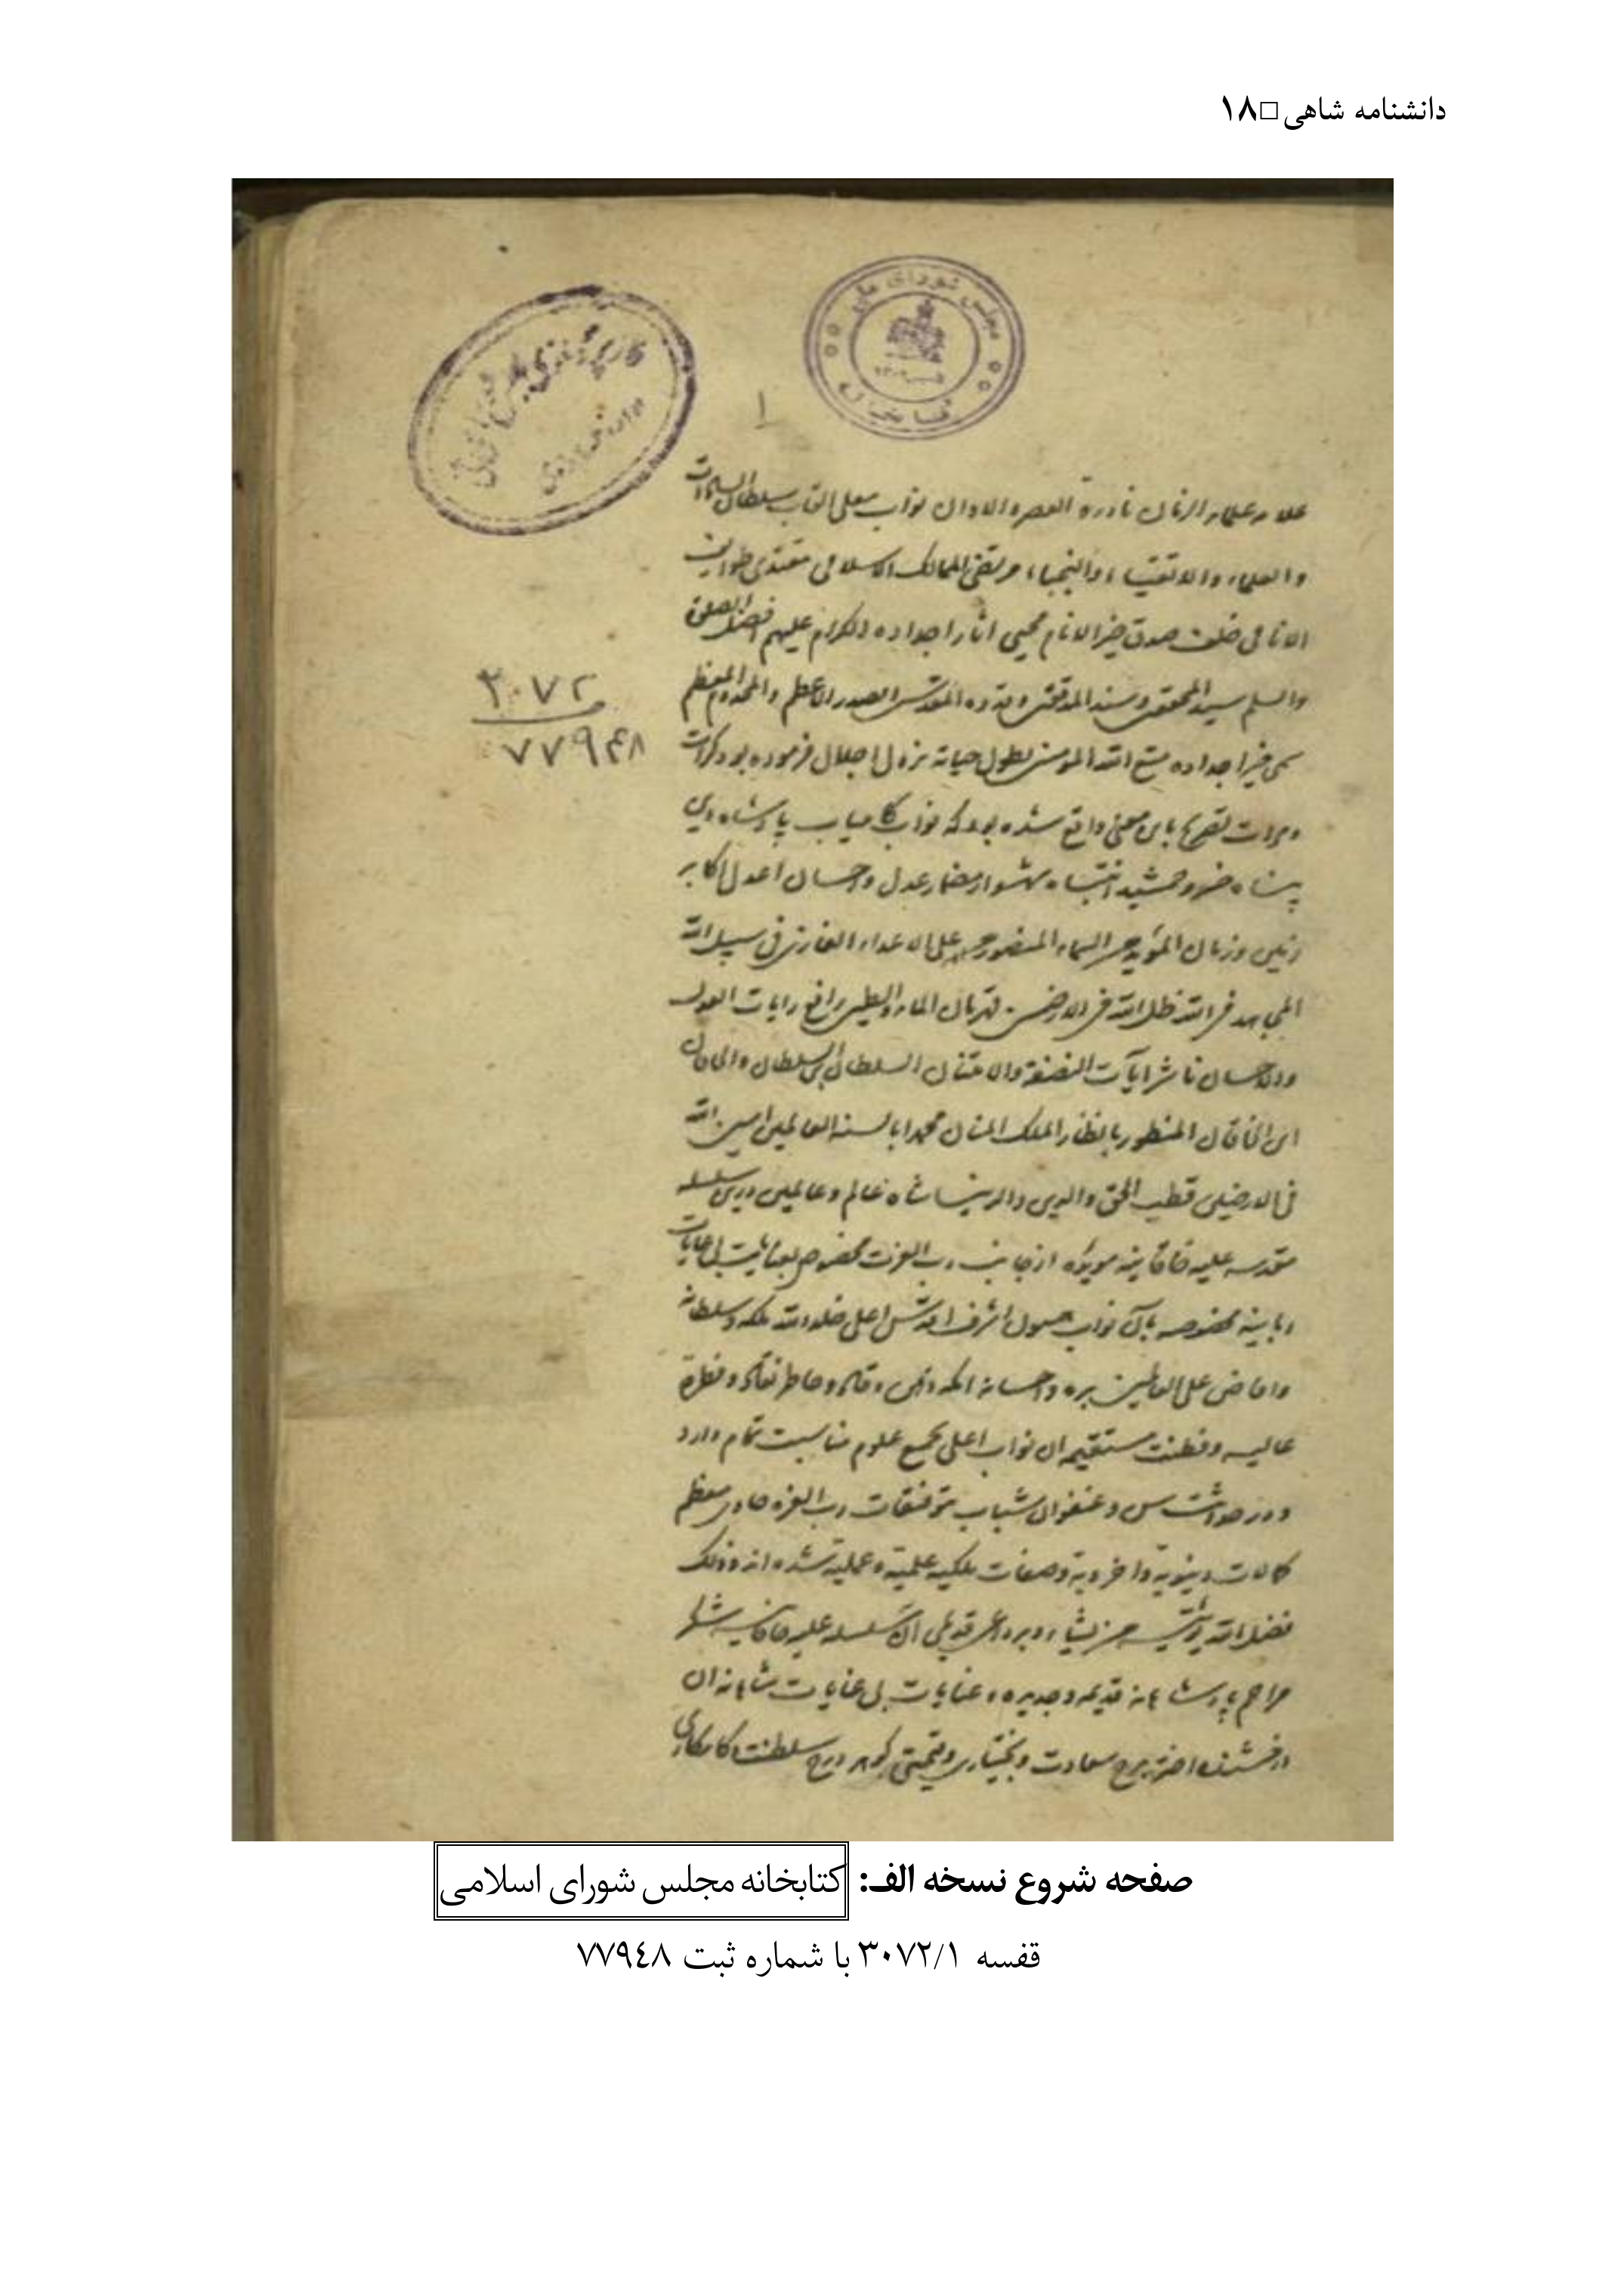 دانشنامه شاهی □ ۱۸
مجلس شورای ملی
۱
علامه علماء الزمان نادرة العصر والاوان نواب معلی القاب سلطان السادات
والعلماء والاتقیاء والنجباء مرتضی الممالک الاسلامی مقتدی طوایف
الانامی خلف صدق خیر الانام محیی اثار اجداده الکرام علیهم افضل الصلوة
والسلم سید المحققین وسند المدققین وقدوه المقدسین الصدر الاعظم والمخدوم المعظم
۳۰۷۲
۷۷۹۴۸
سمی خیر اجداده متع الله المومنین بطول حیاته نزول اجلال فرموده بود کرات
ومرات تصریح باین معنی واقع شده بود که نواب کامیاب پادشاه دین
پناه خسرو جمشید انتباه شهسوار مضمار عدل واحسان اعدل اکابر
زمین وزمان الموید من السماء المنصور علی الاعداء الغازی فی سبیل الله
المجاهد فی الله ظل الله فی الارضین قهرمان الماء والطین رافع رایات العدل
والاحسان ناشر ایات النصفة والامتنان السلطان بن السلطان والخاقان
ابن الخاقان المنظور بانظار الملک المنان محمدا بالسنة العالمین امین الله
فی الارضین قطب الحق والدین والدنیا شاه عالم وعالمیان درین سلسله
مقدسه علیه خاقانیه موید که از جانب رب العزت مخصوص بعنایت بی غایات
ربانیه مخصوصه بآن نواب همیون اشرف اقدس اعلی خلد الله ملکه وسلطانه
وافاض علی العالمین بره واحسانه انکه ذهن وقاد وخاطر نقاد وفطرة
عالیه وفطنت مستقیمه ان نواب اعلی بجمیع علوم مناسبت تمام دارد
ودر حداثت سن وعنفوان شباب بتوفیقات رب العزه حاوی معظم
کمالات دنیویة واخرویة وصفات ملکیه علمیة وعملیة شده اند وذلک
فضل الله یؤتیه من یشاء وبر داعی قدیمی ان سلسله علیه خاقانیه
مراحم پادشاهانه قدیمه وجدیده وعنایات بی غایات شاهانه ان
درخشنده اختر برج سعادت وبختیاری وقیمتی گوهر درج سلطنت وکامکاری
صفحه شروع نسخه الف: کتابخانه مجلس شورای اسلامی
قفسه ۳۰۷۲/۱ با شماره ثبت ۷۷۹٤۸